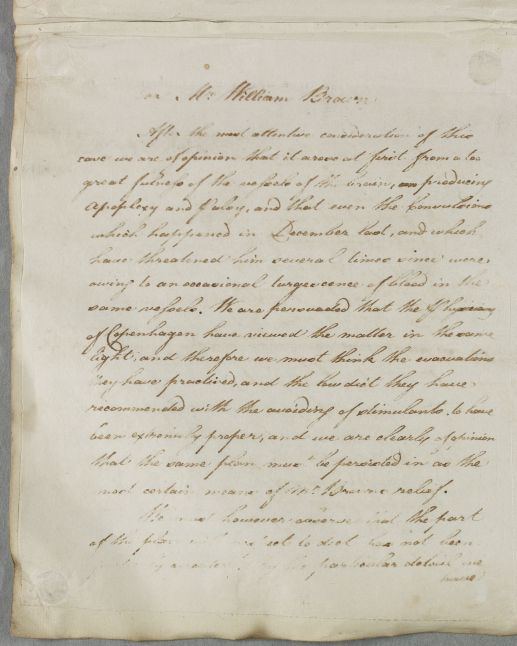 Mr. William Brown
After the most attentive consideration of this
case we are of opinion that it arose at first from a too
great fulness of the vessels of the brain, producing
Apoplexy and Palsy, and that even the Convulsions
which happened in December last, and which
have threatened him several times since were
owing to an occasional turgescence of blood in the
same vessels. We are persuaded that the Physicians
of Copenhagen have viewed the matter in the same
light; and therefore we must think the evacuations
they have practised, and the low diet they have
recommended with the avoiding of stimulants, to have
been extremely proper, and we are clearly of opinion
that the same plan must be persisted in as the
most certain means of Mr. Browns relief.
We must however observe that the part
of the plan with respect to diet has not been
by the particular detail we
have